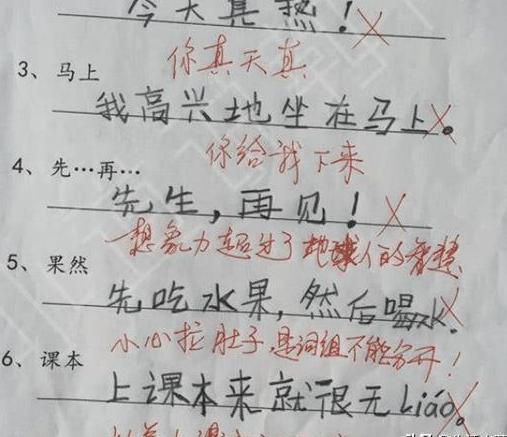 今天真热！
你真天真
3、马上
我高兴地坐在马上。
你给我下来
4、先…再…
先生，再见！
想象力超过了地球人的智慧
5、果然
先吃水果，然后喝水。
小心拉肚子，是词组不能分开！
6、课本
上课本来就很无Liáo。